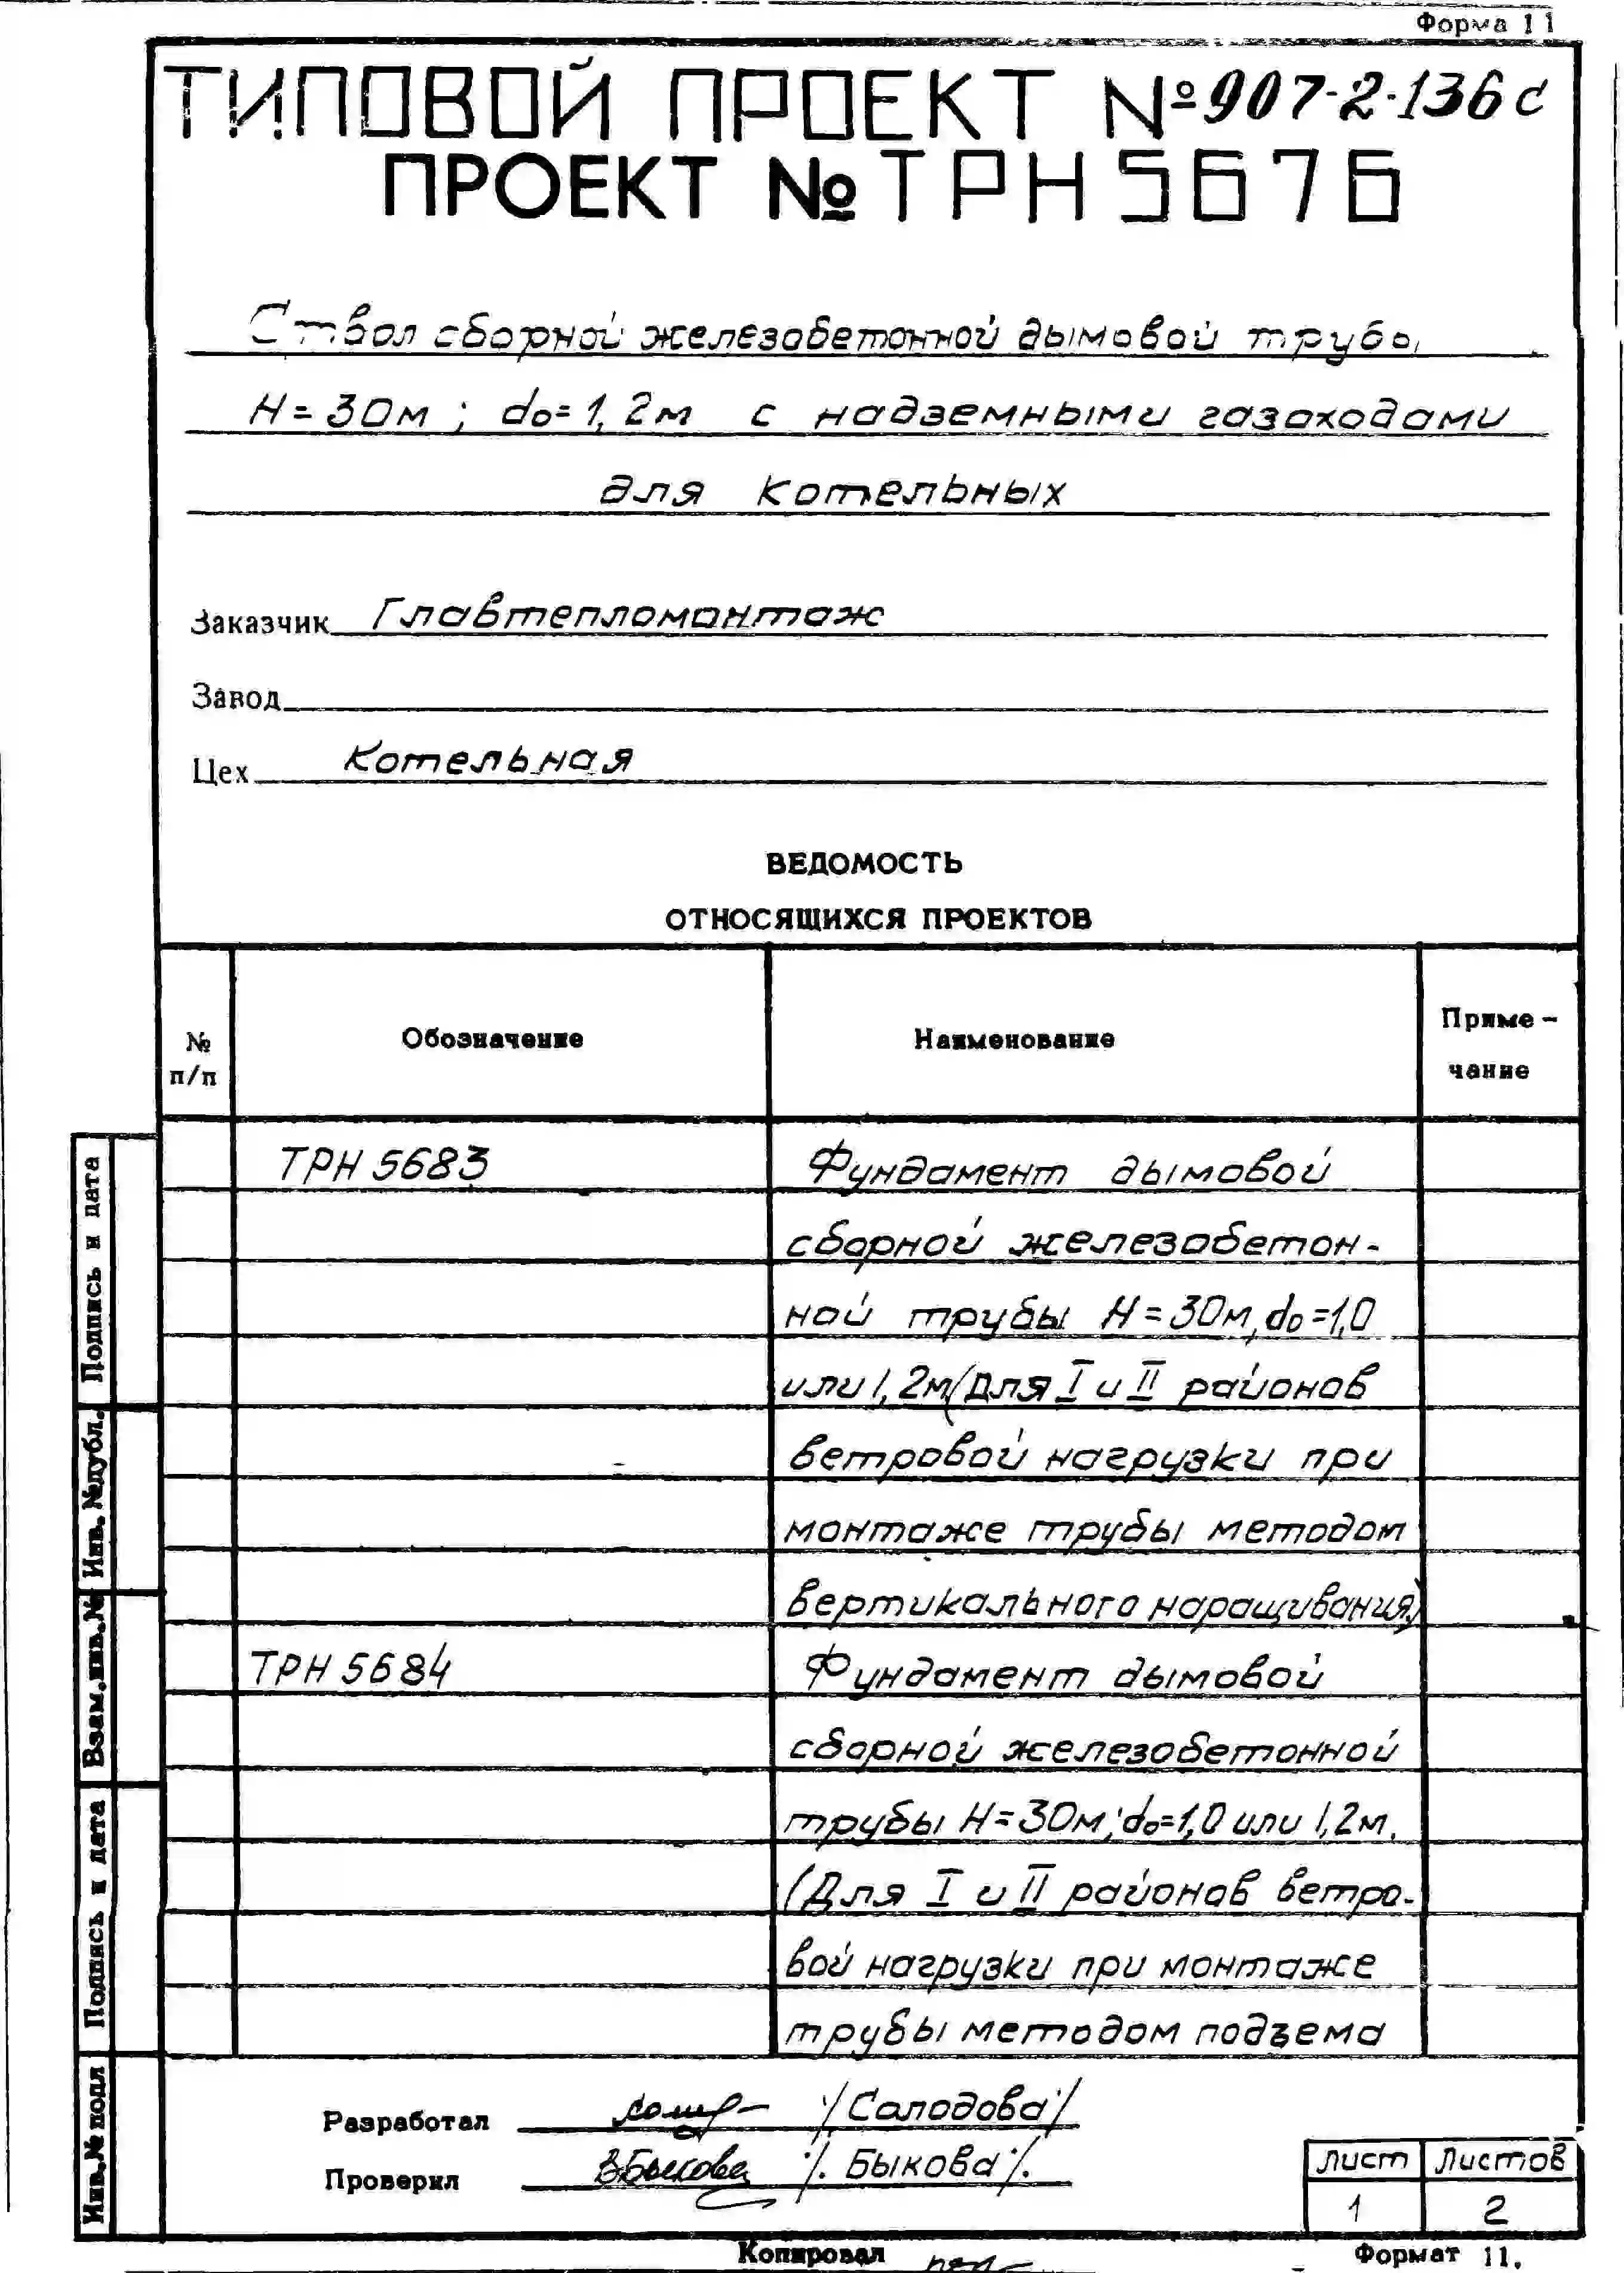 Форма 11
ТИПОВОЙ ПРОЕКТ №907-2-136с
ПРОЕКТ № ТРН5676
Ствол сборной железобетонной дымовой трубы
Н=30м; do=1,2м с надземными газоходами
для котельных
Заказчик Главтепломонтаж
Завод
Цех Котельная
ВЕДОМОСТЬ
ОТНОСЯЩИХСЯ ПРОЕКТОВ
№ п/п
Обозначение
Наименование
Приме-
чание
ТРН 5683 Фундамент дымовой
сборной железобетон-
ной трубы Н=30м, do=1,0
или 1,2м (Для I и II районов
ветровой нагрузки при
монтаже трубы методом
вертикального наращивания)
ТРН 5684 Фундамент дымовой
сборной железобетонной
трубы Н=30м; do=1,0 или 1,2м.
(Для I и II районов ветро-
вой нагрузки при монтаже
трубы методом подъема
Подпись и дата
Инв. №дубл.
Взам.инв.№
Подпись и дата
Инв.№ подл
Разработал /Солодова/
Проверил ВБыкова /Быкова/.
Лист Листов
1 2
Копировал
Формат 11.